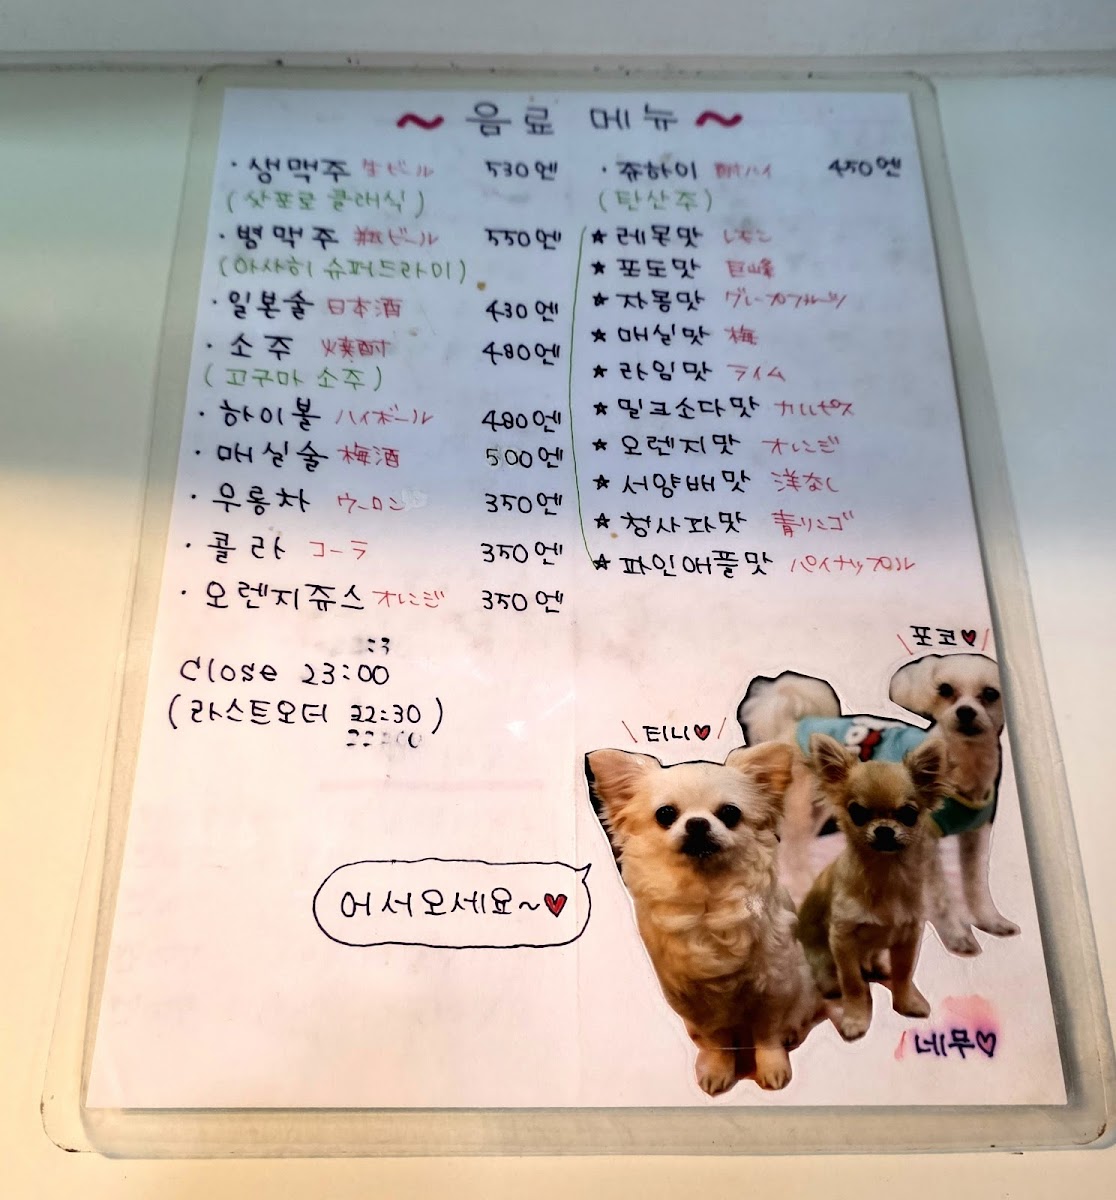 ~ 음료 메뉴 ~
· 생맥주 生ビール 530엔
(삿포로 클래식)
· 병맥주 瓶ビール 550엔
(아사히 슈퍼드라이)
· 일본술 日本酒 430엔
· 소주 焼酎 480엔
(고구마 소주)
· 하이볼 ハイボール 480엔
· 매실술 梅酒 500엔
· 우롱차 ウーロン 350엔
· 콜라 コーラ 350엔
· 오렌지쥬스 オレンジ 350엔
Close 23:00
(라스트오더 22:30)
· 츄하이 酎ハイ 450엔
(탄산주)
★ 레몬맛 レモン
★ 포도맛 巨峰
★ 자몽맛 グレープフルーツ
★ 매실맛 梅
★ 라임맛 ライム
★ 밀크소다맛 カルピス
★ 오렌지맛 オレンジ
★ 서양배맛 洋なし
★ 청사과맛 青リンゴ
★ 파인애플맛 パイナップル
\포코♥/
\티니♥/
어서오세요~♥
/네무♡